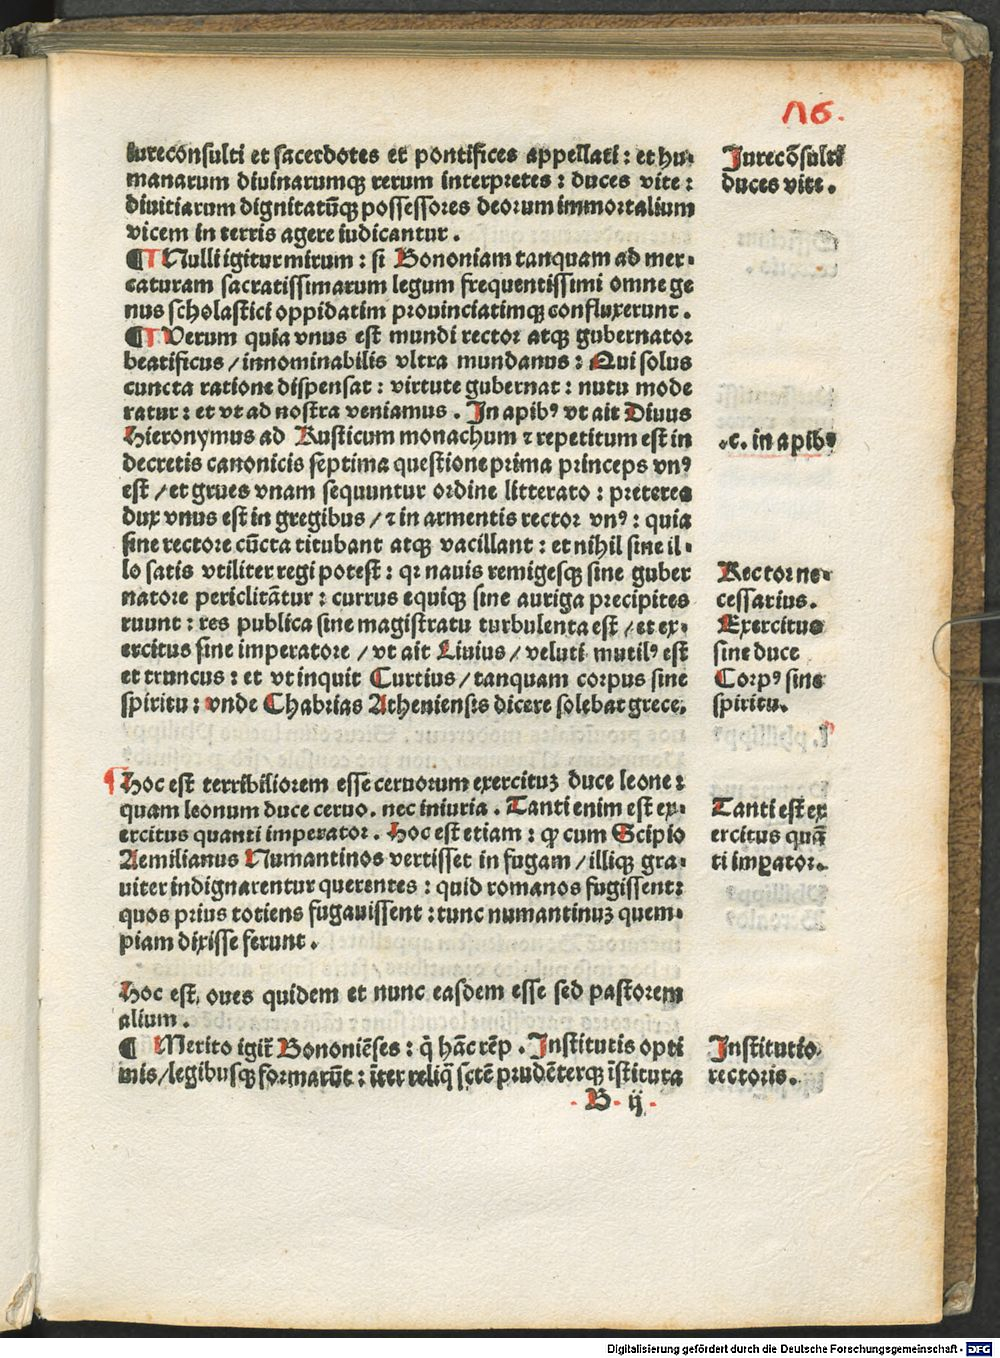 116.
iureconsulti et sacerdotes et pontifices appellati: et hu-
manarum diuinarumqꝫ rerum interpretes: duces vite:
diuitiarum dignitatūqꝫ possessores deorum immortalium
vicem in terris agere iudicantur.
¶ Nulli igitur mirum: si Bononiam tanquam ad mer-
caturam sacratissimarum legum frequentissimi omne ge
nus scholastici oppidatim prouinciatimqꝫ confluxerunt.
¶ Verum quia vnus est mundi rector atqꝫ gubernator
beatificus/innominabilis vltra mundanus: Qui solus
cuncta ratione dispensat: virtute gubernat: nutu mode
ratur: et vt ad nostra veniamus. In apibꝰ vt ait Diuus
Hieronymus ad Rusticum monachum ⁊ repetitum est in
decretis canonicis septima questione prima princeps vnꝰ
est/et grues vnam sequuntur ordine litterato: preterea
dux vnus est in gregibus/⁊ in armentis rector vnꝰ: quia
sine rectore cūcta titubant atqꝫ vacillant: et nihil sine il-
lo satis vtiliter regi potest: qꝛ nauis remigesqꝫ sine guber
natore periclitātur: currus equiqꝫ sine auriga precipites
ruunt: res publica sine magistratu turbulenta est/et ex-
ercitus sine imperatore/vt ait Liuius/veluti mutilꝰ est
et truncus: et vt inquit Curtius/tanquam corpus sine
spiritu: vnde Chabrias Atheniensis dicere solebat grece.
Hoc est terribiliorem esse ceruorum exercituꝫ duce leone:
quam leonum duce ceruo. nec iniuria. Tanti enim est ex-
ercitus quanti imperator. Hoc est etiam: ꝙ cum Scipio
Aemilianus Numantinos vertisset in fugam/illiqꝫ gra-
uiter indignarentur querentes: quid romanos fugissent:
quos prius totiens fugauissent: tunc numantinuꝫ quem-
piam dixisse ferunt.
Hoc est, oues quidem et nunc easdem esse sed pastorem
alium.
¶ Merito igit̄ Bononiēses: q̄ hāc rēp. Institutis opti
mis/legibusqꝫ formarūt: īter reliq̄ sctē prudēterqꝫ īstituta
B ij
Iurecōsulti
duces vite.
.c. in apibꝰ
Rector ne-
cessarius.
Exercitus
sine duce
Corpꝰ sine
spiritu.
Tanti est ex
ercitus quā
ti imꝑator.
Institutio
rectoris.
Digitalisierung gefördert durch die Deutsche Forschungsgemeinschaft - DFG